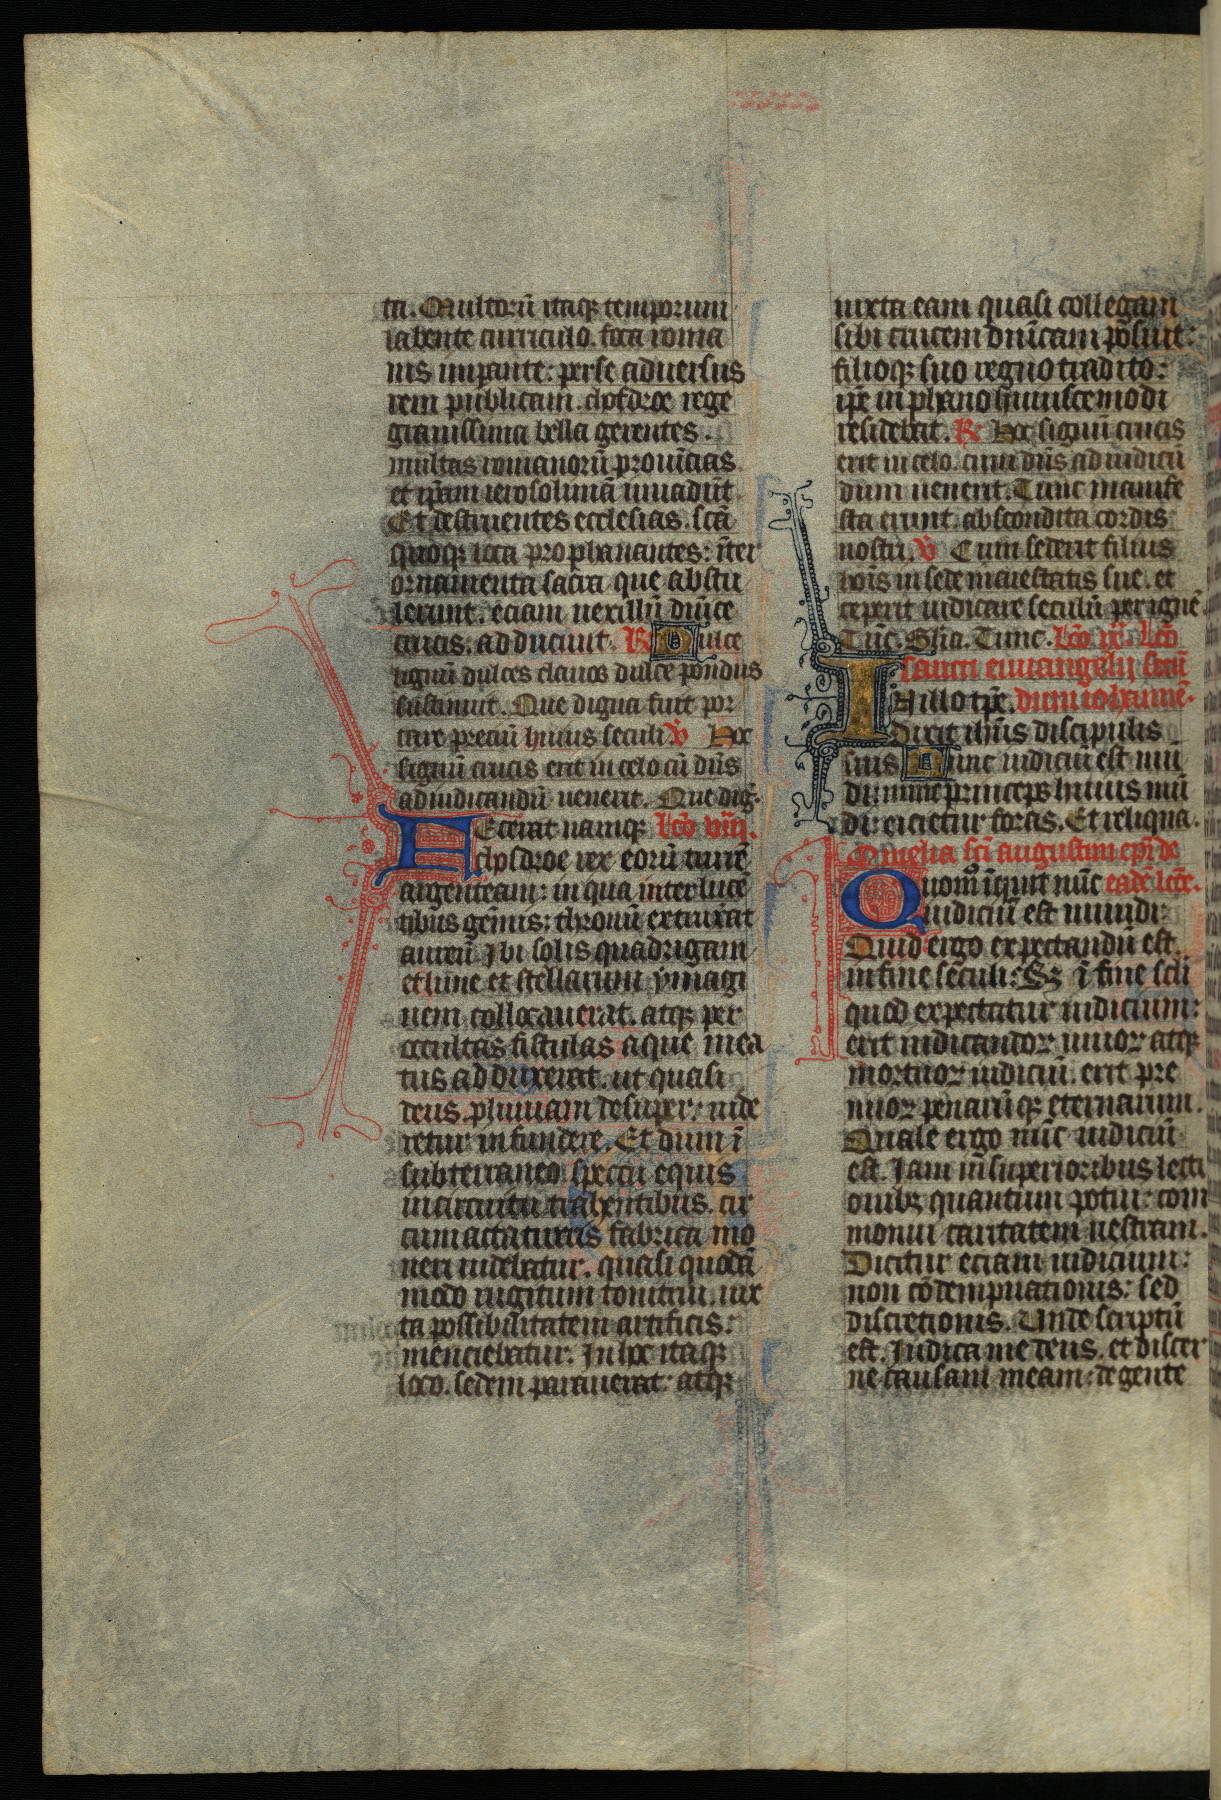 ta. Multorū itaq; temporum
labente curriculo. foca roma
nis impante: perse aduersus
rem publicam. chosdroe rege
grauissima bella gerentes.
multas romanorū prouīcias
et ip̄am ierosolimā inuadūt.
Et destruentes ecclesias. scā
quoq; loca prophanantes: īter
ornamenta sacra que abstu
lerunt. eciam uexillū dn̄ice
crucis. adduciut. R Dulce
lignū dulces clauos dulce pondus
sustinuit. Que digna fuit por
tare preciū huius seculi. V Hoc
signū crucis erit in celo cū dn̄s
ad iudicandū uenerit. Que dig.
Fecerat namq; Lc̄o viij.
chosdroe rex eorū turrē
argenteam: in qua interlucē
tibus gēmis: thronū extruxit
aureū. Ibi solis quadrigam
et lune et stellarum ymagi
nem collocauerat. atq; per
occultas fistulas aque mea
tus adduxerat. ut quasi
deus. pluuiam desuper: uide
retur infundere. Et dum ī
subterraneo specu equis
in circuitu trahentibus. cir
cumacta turris fabrica mo
ueri uidebatur. quasi quodā
modo rugitum tonitrui. iux
ta possibilitatem artificis:
menciebatur. In hoc itaq;
loco. sedem parauerat: atq;
iuxta eam quasi collegam
sibi crucem dn̄icam posuit:
filioq; suo regno tradito:
ip̄e in phano huiuscemodi
residebat. R Hoc signū crucis
erit in celo. cum dn̄s ad iudicū
dum uenerit. Tunc manife
sta erunt. abscondita cordis
nostri. V Cum sederit filius
hois in sede maiestatis sue. et
ceperit iudicare seculū per ignē.
Tūc. Glia. Tunc. Lc̄o ix. Lc̄o
sancti euuangelij secū
In illo tp̄e. dum iohannē.
Dixit ihūs discipulis
suis Nunc iudiciū est mū
di: nunc princeps huius mū
di: eicietur foras. Et reliqua.
Omelia sc̄i augustini ep̄i de
Quom̄o īquit nūc eadē lc̄oe.
iudiciū est mundi:
Quid ergo expectandū est
in fine seculi: Sz ī fine scl̄i
quod expectatur iudicium:
erit iudicandor uiuor atq;
mortuor iudiciū. erit pre
mior penarūq; eternarum.
Quale ergo nūc iudiciū
est. Iam in superioribus lecti
onibz quantum potui: com
monui caritatem uestram.
Dicitur eciam iudicium:
non cōdempnationis: sed
discretionis. Unde scriptū
est. Iudica me deus. et discer
ne causam meam: de gente